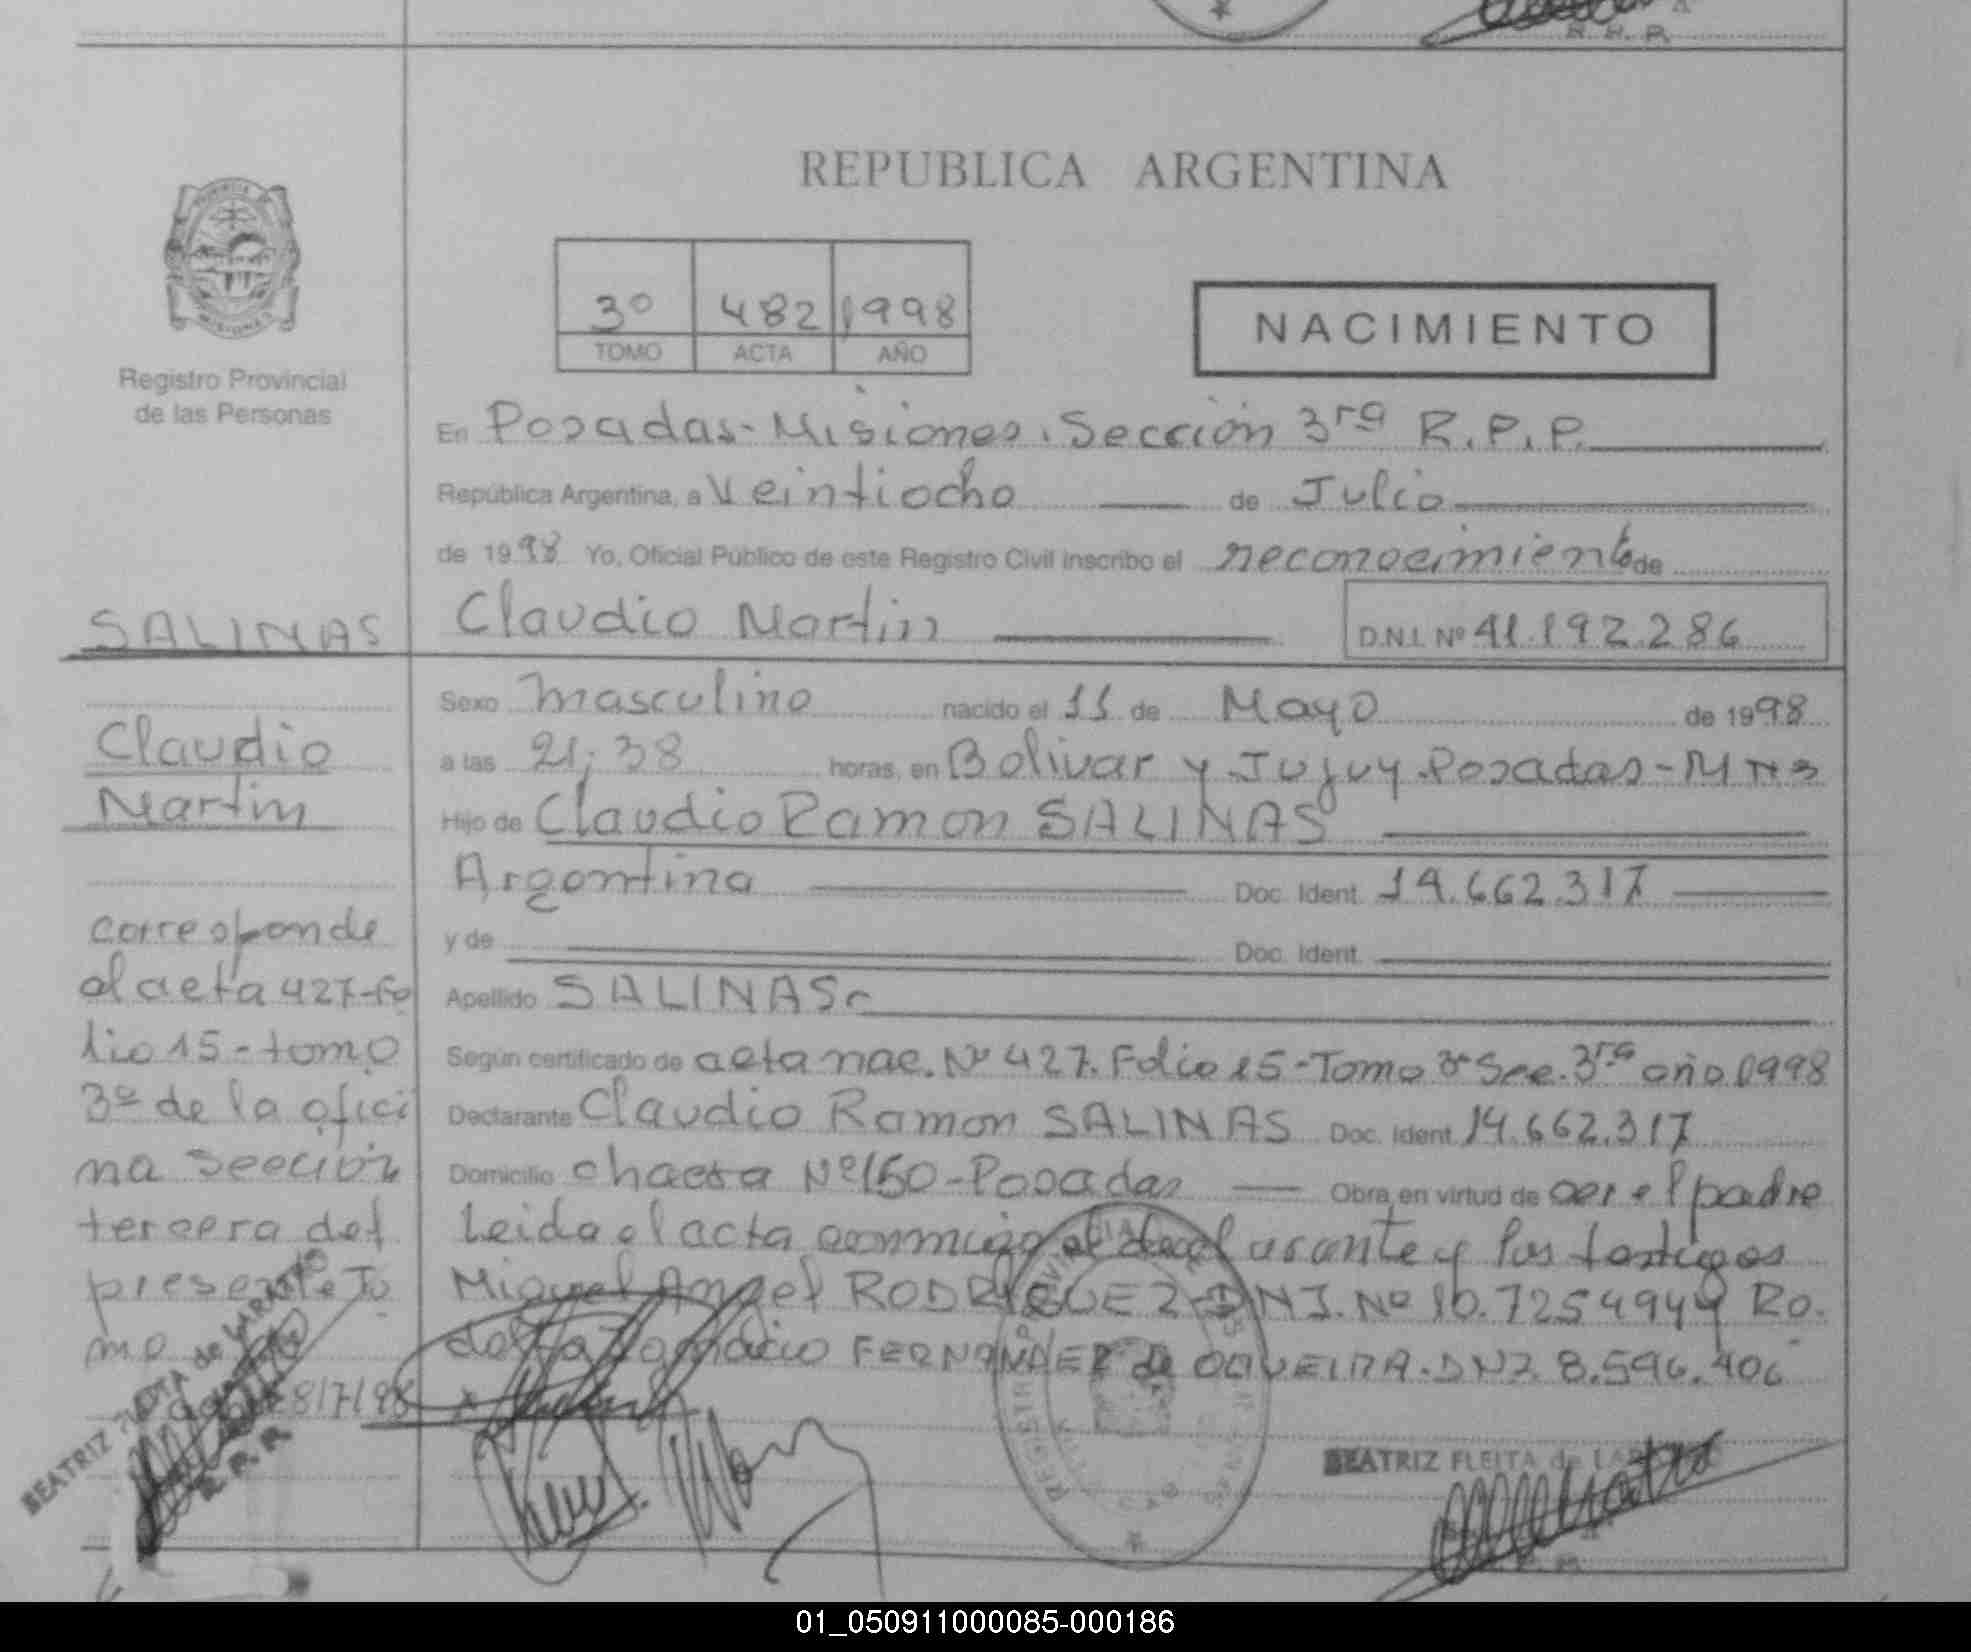 REPUBLICA ARGENTINA
3º 482 1998
TOMO ACTA AÑO
NACIMIENTO
Registro Provincial
de las Personas
En Posadas-Misiones. Sección 3ra R.P.P.
República Argentina, a Veintiocho de Julio
de 1998 Yo, Oficial Público de este Registro Civil inscribo el reconocimiento de
SALINAS
Claudio Martin
D.N.I. Nº 41.192.286
Claudio
Martin
Sexo Masculino nacido el 11 de Mayo de 1998
a las 21;38 horas, en Bolivar y Jujuy. Posadas-MNS
Hijo de Claudio Ramon SALINAS
Argentina Doc. Ident. 14.662.317
y de Doc. Ident.
Apellido SALINAS
Según certificado de acta nac. Nº 427. Folio 15-Tomo 3º Sec. 3ra año 1998
Declarante Claudio Ramon SALINAS Doc. Ident. 14.662.317
Domicilio chacra Nº 150-Posadas Obra en virtud de ser el padre
Leida el acta conmigo el declarante y los testigos
Miguel Angel RODRIGUEZ DNI. Nº 10.725494 y Ro.
FERNANDEZ de OLIVEIRA. DNI 8.596.406
corresponde
al acta 427-Fo
lio 15-tomo
3º de la ofici
na sección
tercera del
presente To
mo
28/7/98
BEATRIZ FLEITA de
R.P.P.
BEATRIZ FLEITA de
01_050911000085-000186